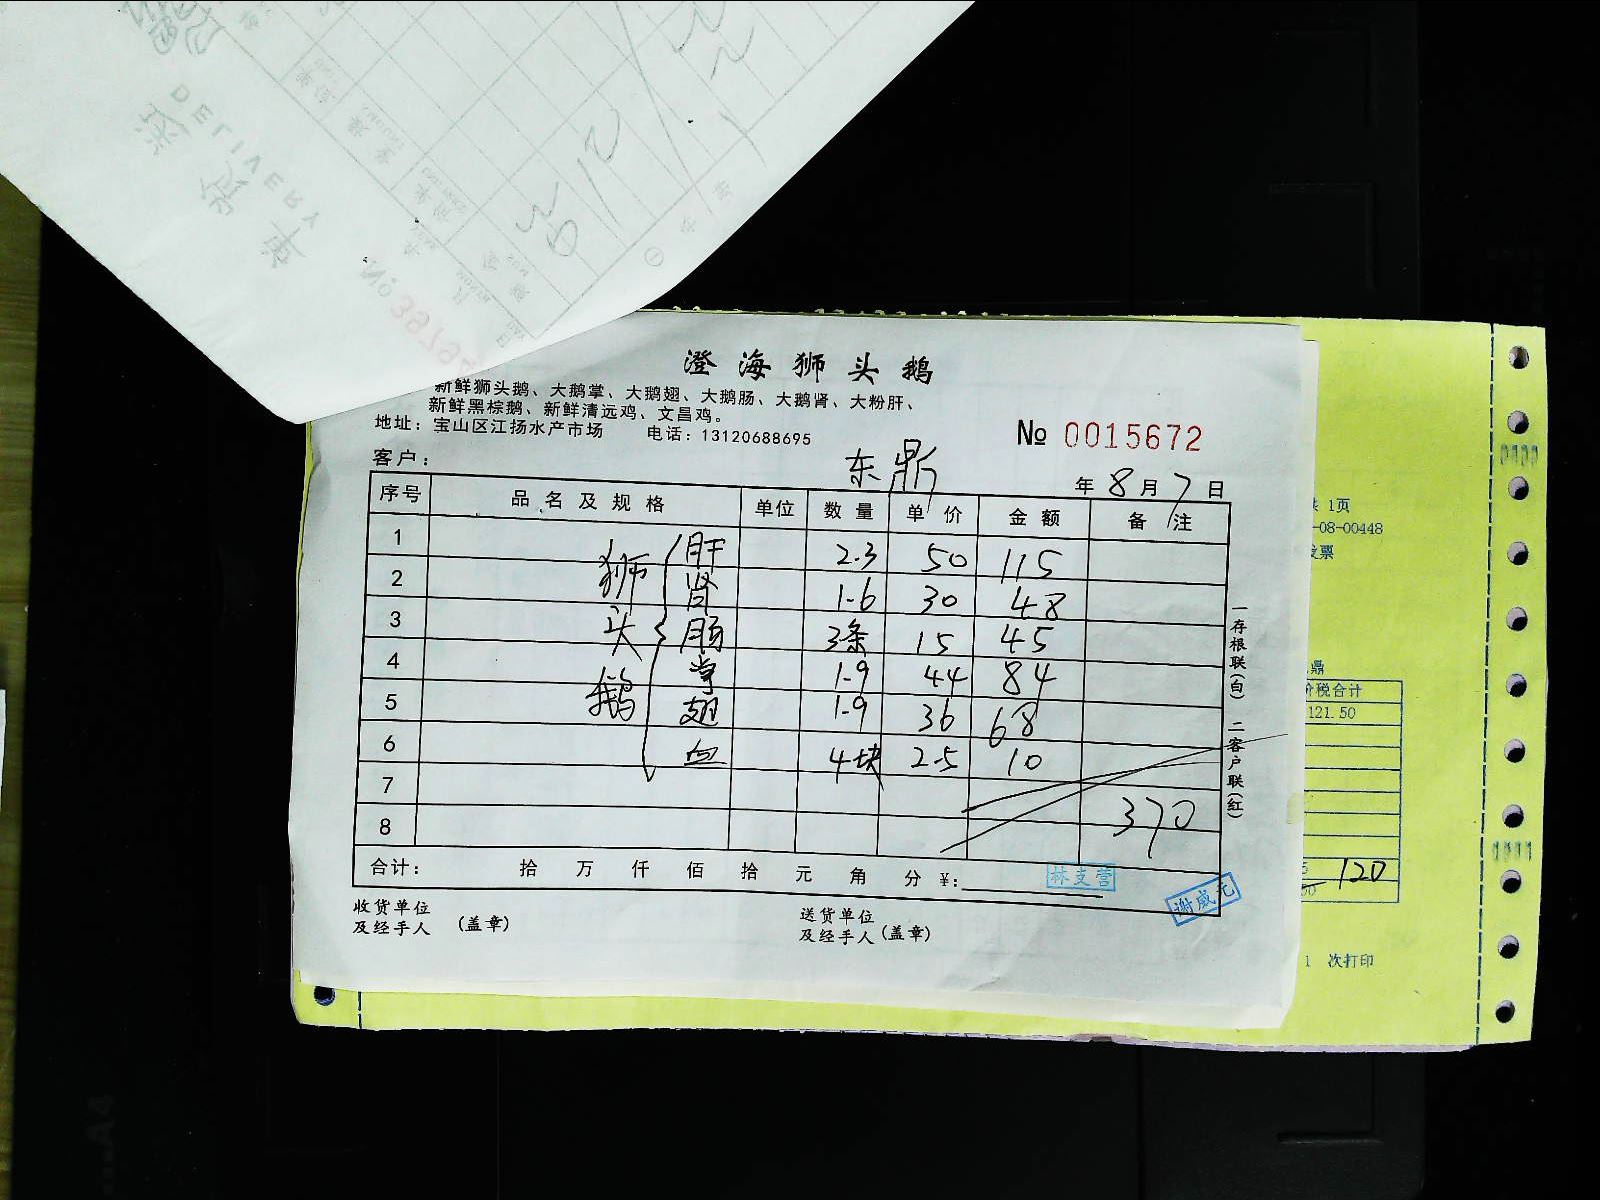 DELIVERY
No.
澄海狮头鹅
新鲜狮头鹅、大鹅掌、大鹅翅、大鹅肠、大鹅肾、大粉肝、
新鲜黑棕鹅、新鲜清远鸡、文昌鸡。
地址：宝山区江扬水产市场 电话：13120688695
№ 0015672
客户： 东鼎
年 8 月 7 日
序号 品名及规格 单位 数量 单价 金额 备注
狮头鹅
1 肝 2.3 50 115
2 肾 1-6 30 48
3 肠 3条 15 45
4 掌 1-9 44 84
5 翅 1-9 36 68
6 血 4块 2-5 10
7 370
8
合计： 拾 万 仟 佰 拾 元 角 分 ¥:
林支营
谢威元
收货单位
及经手人 (盖章)
送货单位
及经手人 (盖章)
一存根联(白) 二客户联(红)
1页
-08-00448
发票
鼎
价税合计
121.50
120
1 次打印
A4